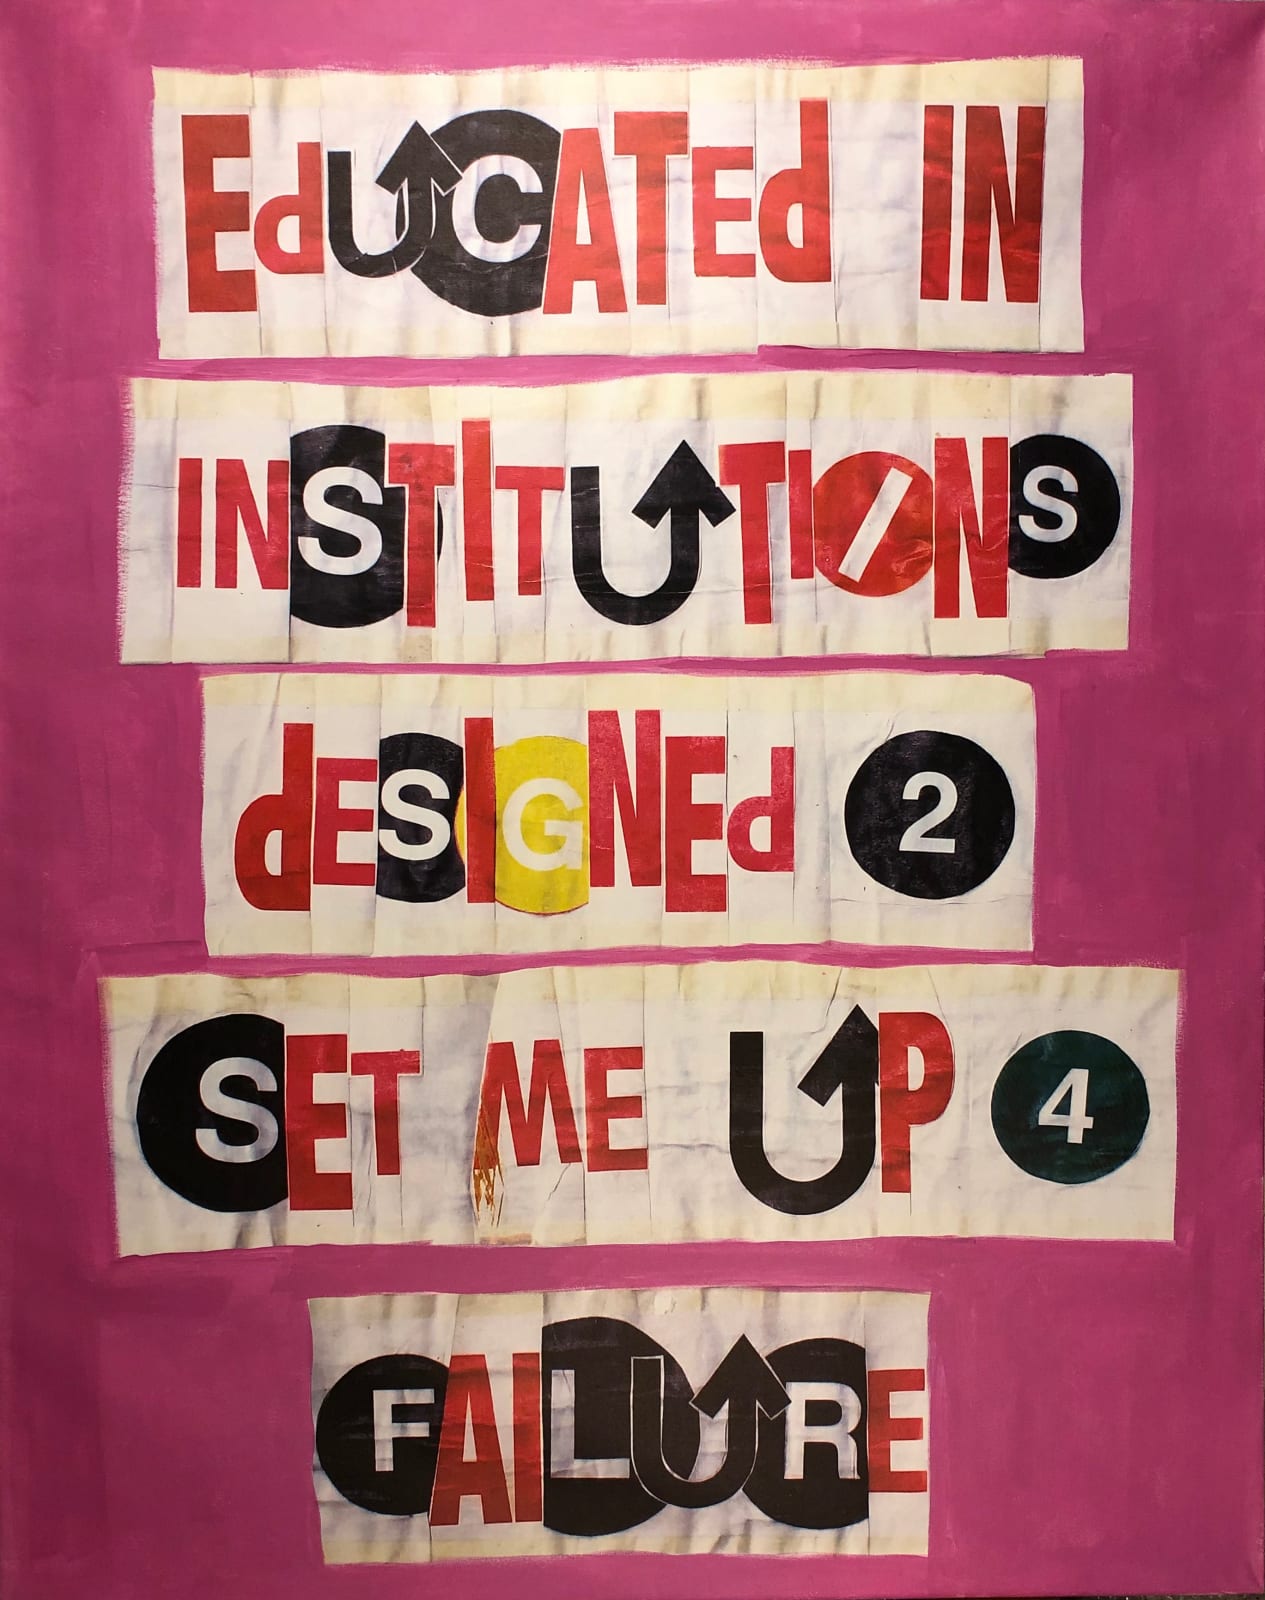 EdUCATEd IN
INSTITUTIONS
dESIGNEd 2
SET ME UP 4
FAILURE